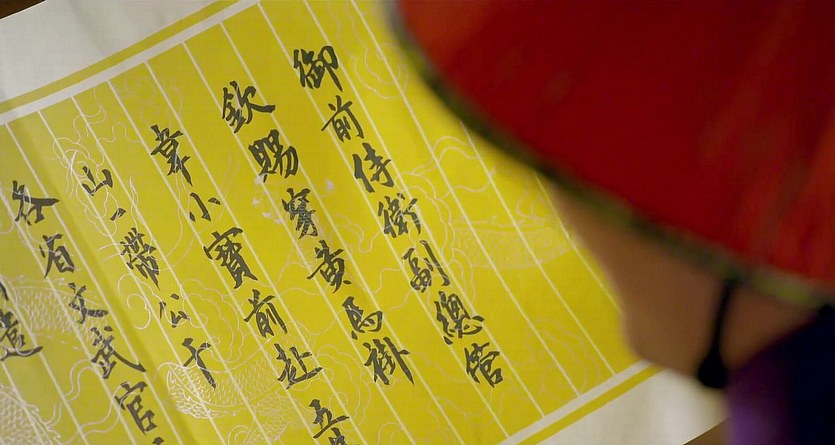 御前侍衛副總管
欽賜穿黃馬褂
韋小寶前赴五
山一帶公干
各省文武官
造